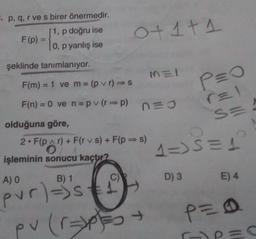 p, q, r ve s birer önermedir.
F(p) = 1, p doğru ise
0, p yanlış ise
0+1+1
şeklinde tanımlanıyor.
F(m) = 1 ve m = (p ∨ r) ⇒ s
m≡1
p≡0
F(n) = 0 ve n = p ∨ (r ⇒ p)
n≡0
r≡1
s≡
olduğuna göre,
2 • F(p ∧ r) + F(r ∨ s) + F(p ⇒ s)
işleminin sonucu kaçtır?
1⇒s≡1
A) 0 B) 1 C) D) 3 E) 4
p∨r)⇒s≡1
p∨(r⇒p)≡0
p≡0
r⇒p≡0